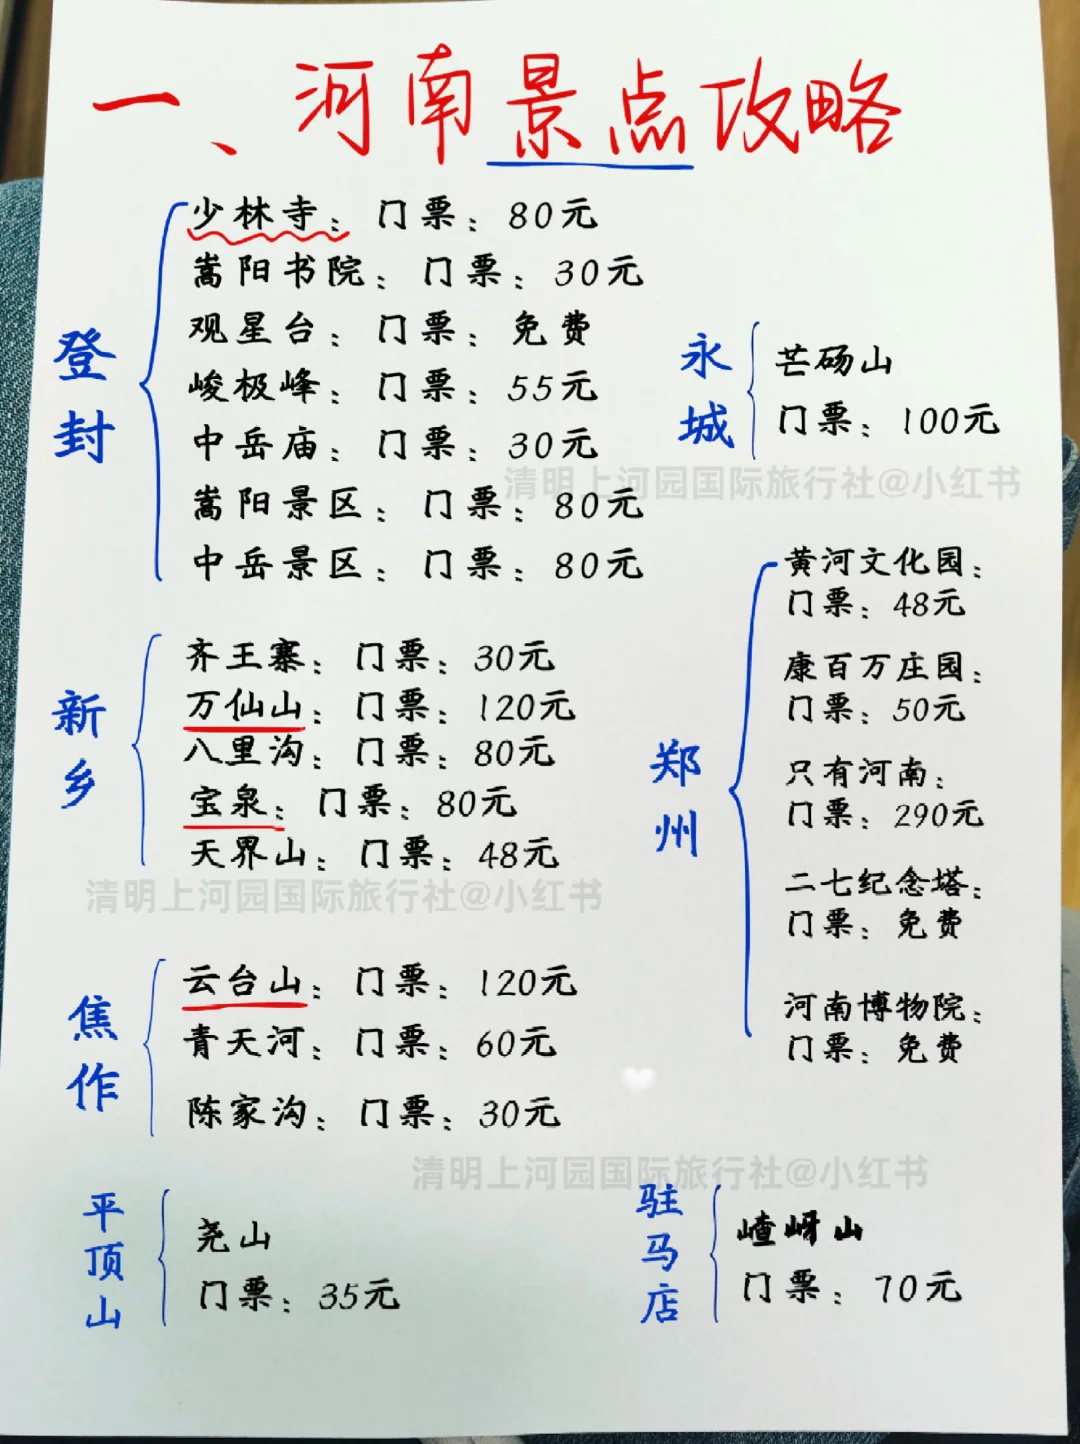 一、河南景点攻略
登封
少林寺：门票：80元
嵩阳书院：门票：30元
观星台：门票：免费
峻极峰：门票：55元
中岳庙：门票：30元
嵩阳景区：门票：80元
中岳景区：门票：80元
永城
芒砀山
门票：100元
清明上河园国际旅行社@小红书
新乡
齐王寨：门票：30元
万仙山：门票：120元
八里沟：门票：80元
宝泉：门票：80元
天界山：门票：48元
清明上河园国际旅行社@小红书
郑州
黄河文化园：
门票：48元
康百万庄园：
门票：50元
只有河南：
门票：290元
二七纪念塔：
门票：免费
河南博物院：
门票：免费
焦作
云台山：门票：120元
青天河：门票：60元
陈家沟：门票：30元
清明上河园国际旅行社@小红书
平顶山
尧山
门票：35元
驻马店
嵖岈山
门票：70元